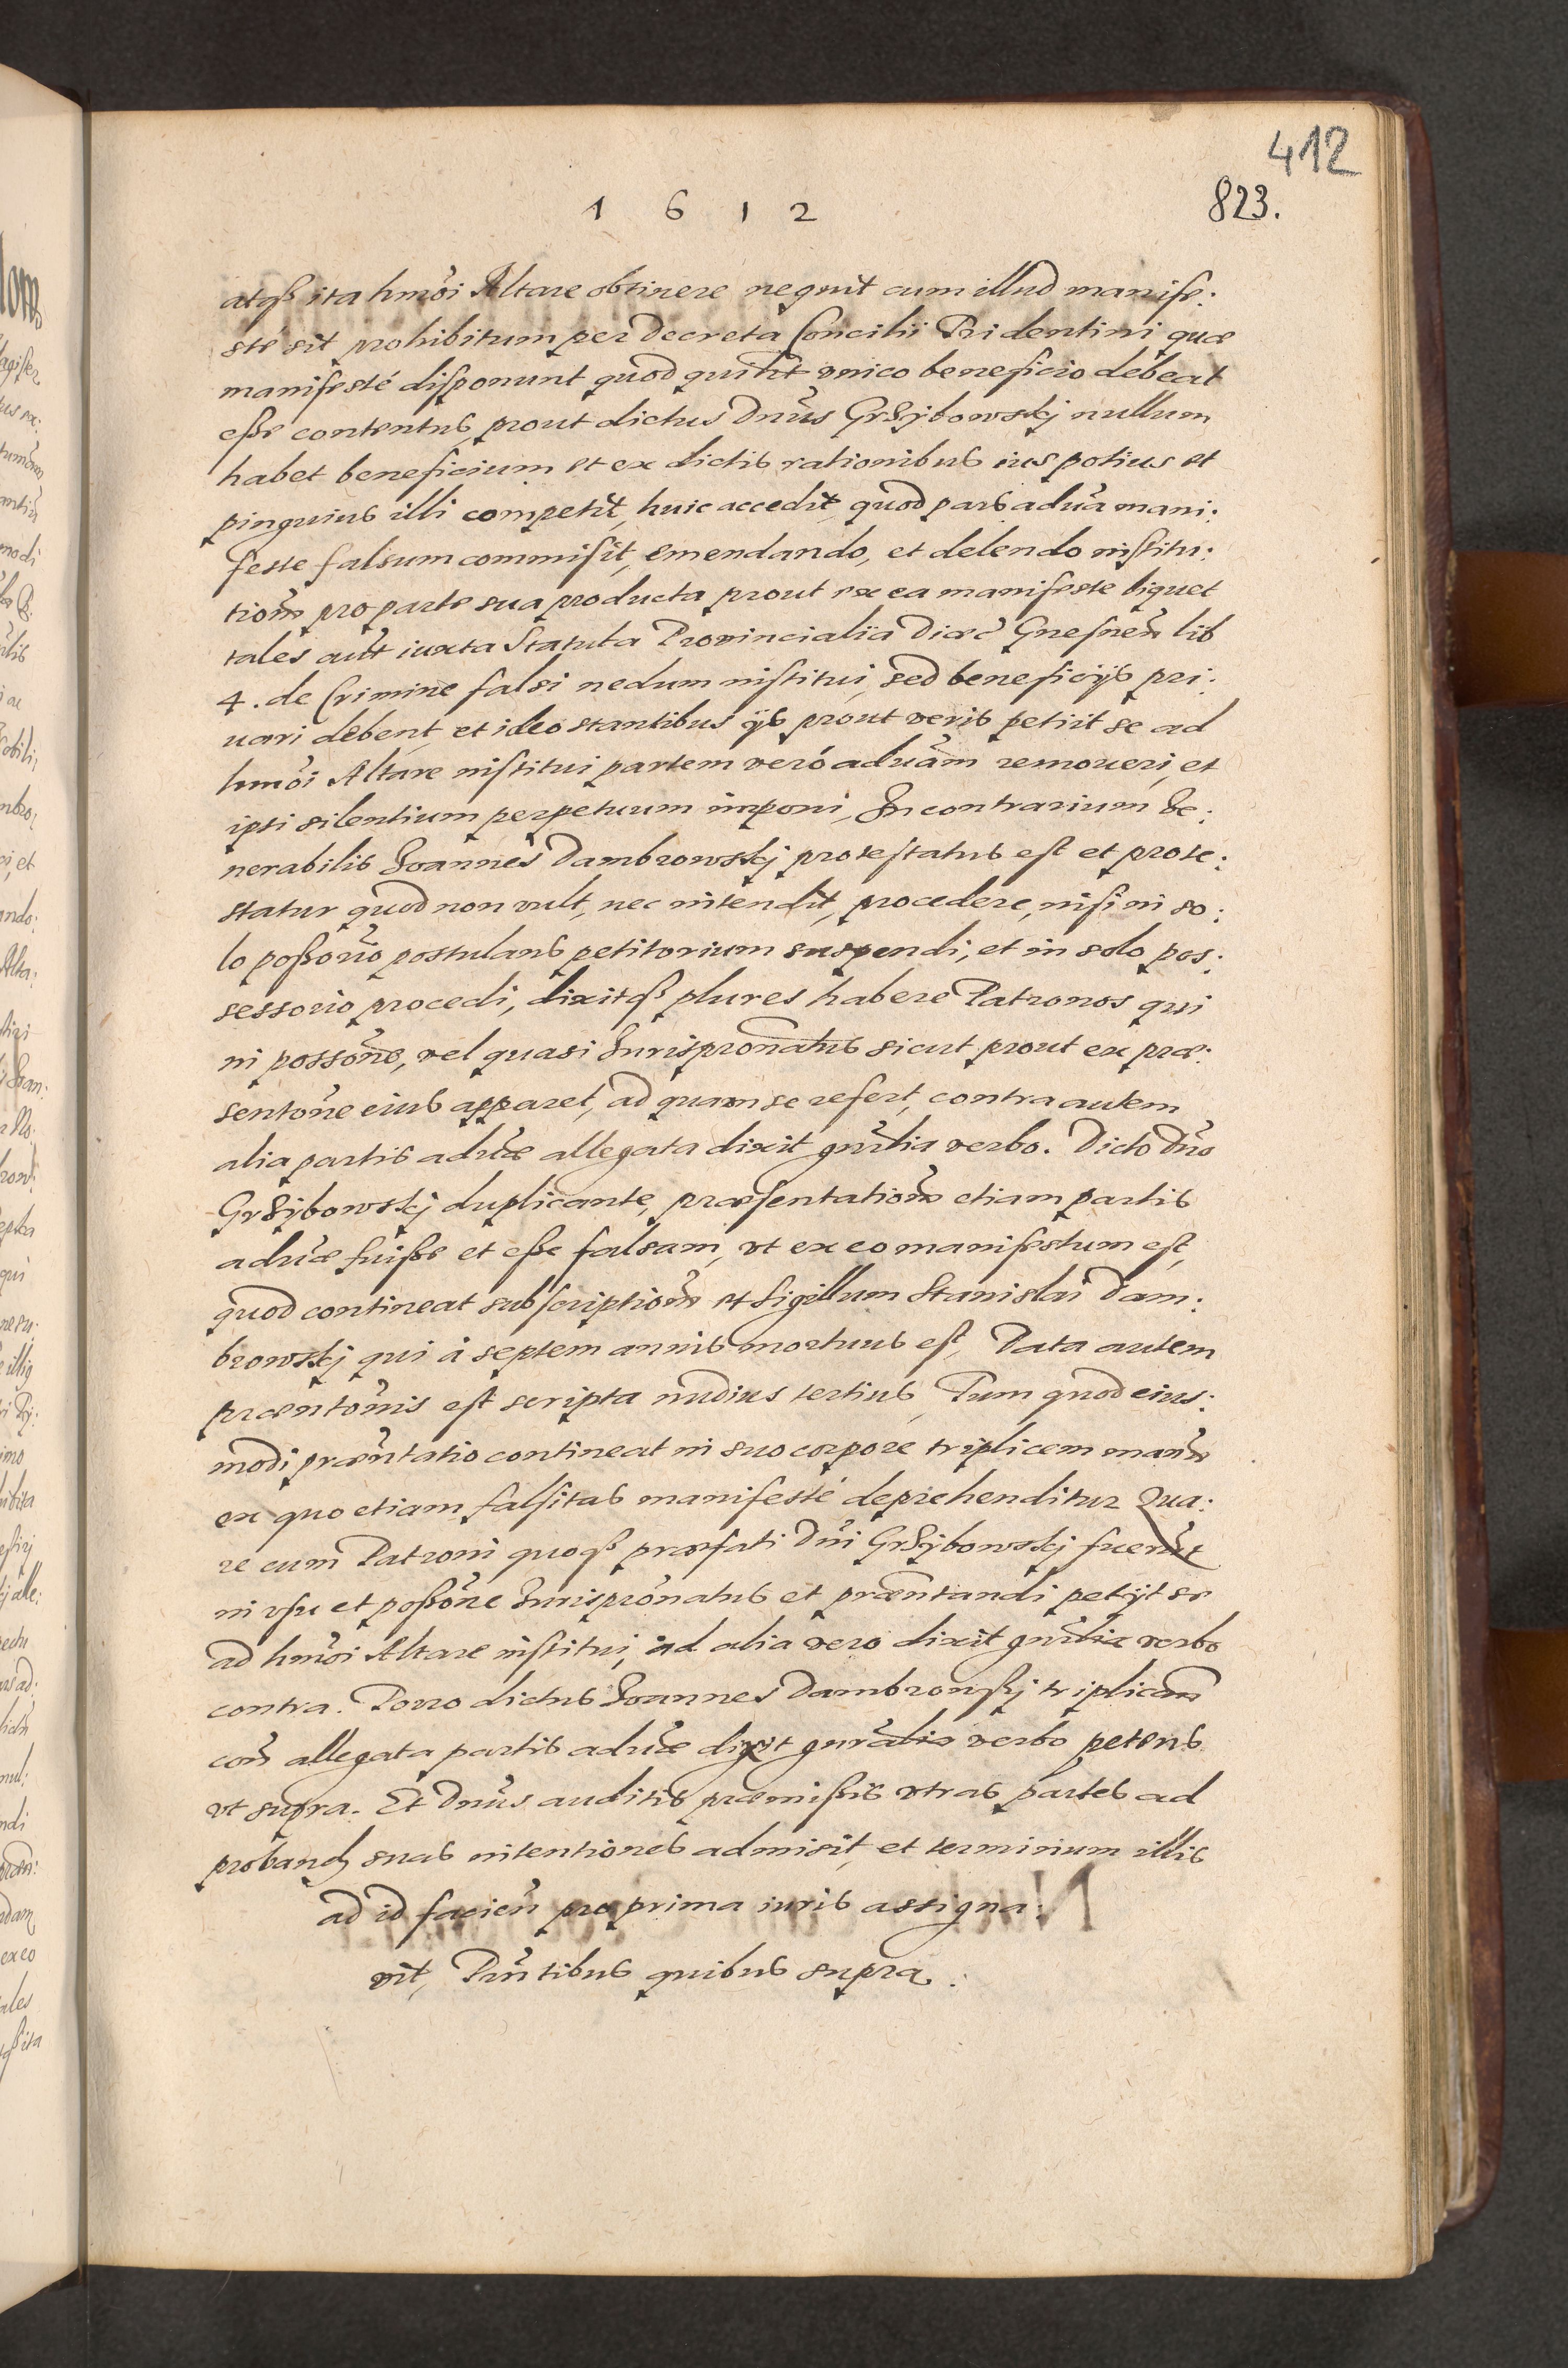 412
1 6 1 2
823.
atqß ita hmõi Altare obtinere nequit cum illud manife:
sté sit prohibitum per Decreta Concilii Tridentini quæ
manifesté disponunt quod quilit unico beneficio debeat
esse contentus, prout dictus Dnus Grzÿbowskj nullum
habet beneficium et ex dictis rationibus ius potius et
pinguius illi competit, huic accedit, quod pars adua mani:
feste falsum commisit, emendando, et delendo institu:
tionẽ pro parte sua producta prout ex ea manifeste liquet
tales aũt iuxta Statuta Provincialia Diæc Gnesneñ lib
4. de Crimine falsi nedum institui, sed beneficÿs pri:
uari debent, et ideo stantibus ÿs prout veris petiit se ad
hmõi Altare institui partem veró aduam remoueri, et
ipsi silentium perpetuum imponi, In contrarium Ve:
nerabilis Joannes Dambrowskj protestatus est et prote:
statur quod non vult, nec intendit, procedere, nisi in so:
lo possorio postulans petitorium suspendi, et in solo pos:
sessorio procedi, dixitqß plures habere Patronos qui
in possone, vel quasi Jurispronatus sicut prout ex præ:
sentone eius apparet, ad quam se refert, contra autem
alia partis aduæ allegata dixit gnralia verbo. Dicto Dno
Grzÿbowskj duplicante, præsentationẽ etiam partis
aduæ fuisse et esse falsam, vt ex eo manifestum est,
quod contineat subscriptionẽ et sigillum Stanislai Dam:
browskj qui à septem annis mortuus est, Data autem
præntonis est scripta nudius tertius, Tum quod eius:
modi præntatio contineat in suo corpore triplicem manũ
ex quo etiam falsitas manifesté deprehenditur Qua:
re cum Patroni quoqß præfati Dni Grzÿbowskj fuerũt
in vsu et possone Jurispronatus et præntandi petÿt se
ad hmõi Altare institui, ad alia vero dixit gnralia verbo
contra. Porro dictus Joannes Dambrowskj triplicañ
coñ allegata partis aduæ dixit gnralia verbo petens
vt supra. Et Dnus auditis præmissis vtras partes ad
proband suas intentiones admisit, et terminum illis
ad id facień pro prima iuris assigna:
vit, Pñtibus quibus supra.